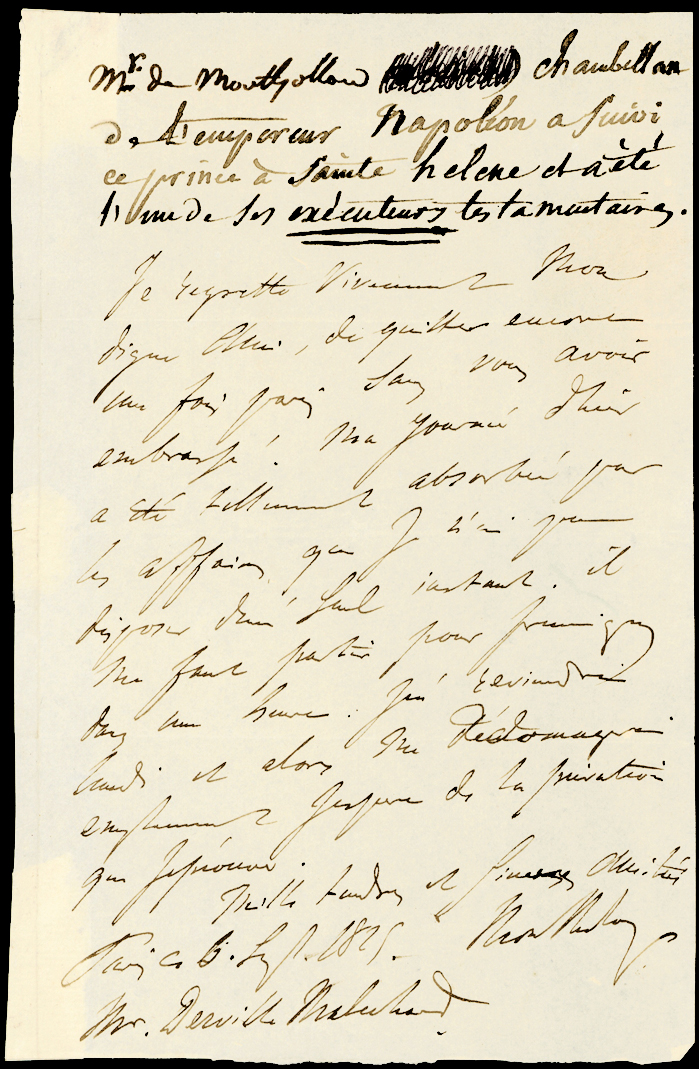 Mr. de Montholon chambellan
de l'empereur Napoléon a suivi
ce prince à Sainte helene et a été
l'un de ses exécuteurs testamentaires.
Je regrette vivement Mon
digne Ami, de quitter encore
une fois paris sans vous avoir
embrassé! Ma journée d'hier
a été tellement absorbée par
les affaires que je n'ai pu
disposer d'un seul instant. il
me faut partir pour
dans une heure. je reviendrai
lundi et alors me dédomagerai
j'espere de la privation
que j'éprouve.
Mille tendres et sinceres Amitiés
Paris ce 5. Sept. 1825. Montholon
Mr. Derville Maléchard